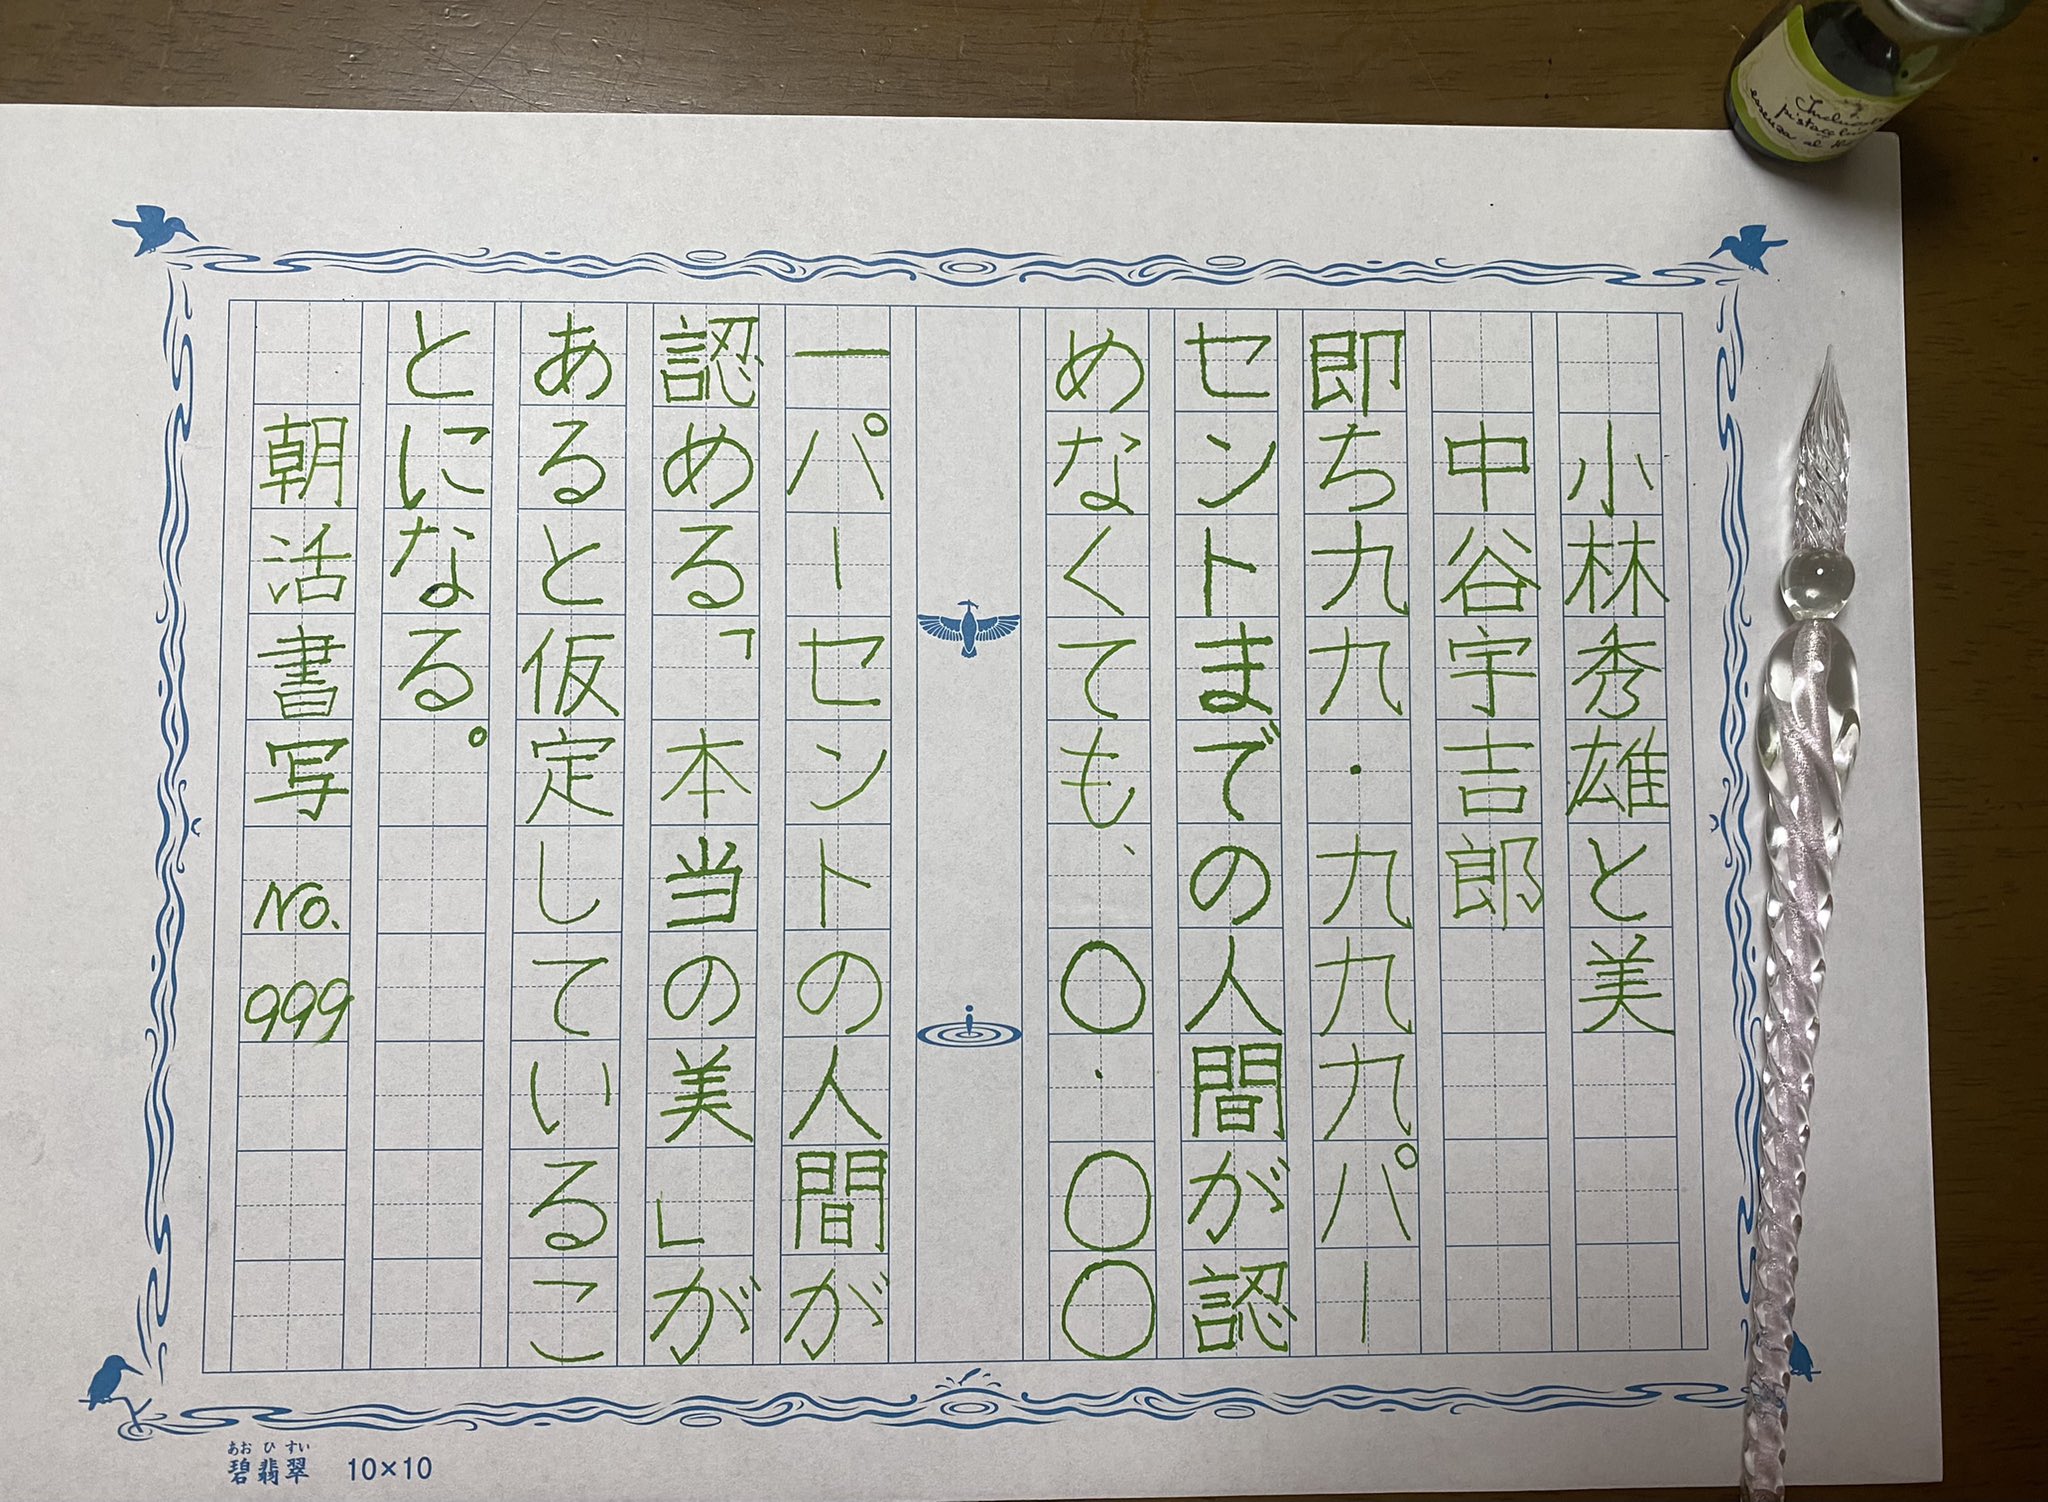 小林秀雄と美
中谷宇吉郎
即ち九九・九九九パー
セントまでの人間が認
めなくても、〇・〇〇
一パーセントの人間が
認める「本当の美」が
あると仮定しているこ
とになる。
朝活書写 No. 999
あお ひ すい
碧翡翠 10×10
pistacchio
essenza al